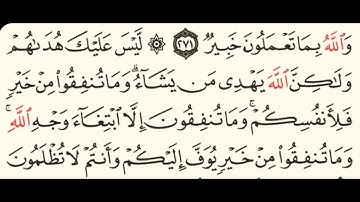 وَٱللَّهُ بِمَا تَعۡمَلُونَ خَبِيرٞ ٢٧١ ۞ لَّيۡسَ عَلَيۡكَ هُدَىٰهُمۡ
وَلَٰكِنَّ ٱللَّهَ يَهۡدِي مَن يَشَآءُۗ وَمَا تُنفِقُواْ مِنۡ خَيۡرٖ
فَلِأَنفُسِكُمۡۚ وَمَا تُنفِقُونَ إِلَّا ٱبۡتِغَآءَ وَجۡهِ ٱللَّهِۚ
وَمَا تُنفِقُواْ مِنۡ خَيۡرٖ يُوَفَّ إِلَيۡكُمۡ وَأَنتُمۡ لَا تُظۡلَمُونَ